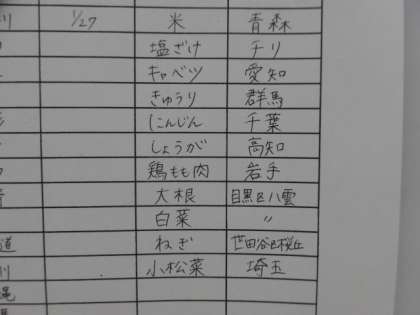 川 1/27 米 青森
塩ざけ チリ
キャベツ 愛知
きゅうり 群馬
にんじん 千葉
しょうが 高知
鶏もも肉 岩手
大根 目黒区八雲
白菜 〃
道 ねぎ 世田谷区桜丘
川 小松菜 埼玉
縄